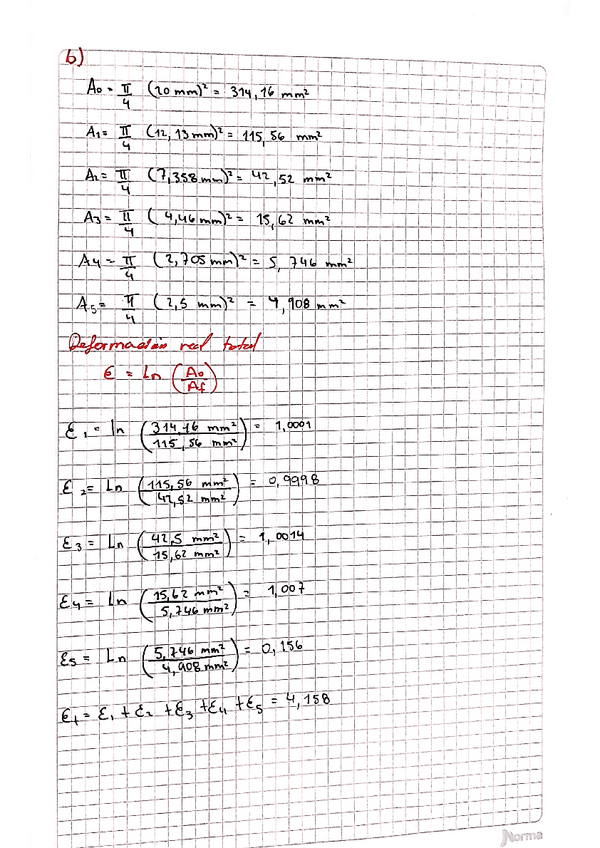 b)
A0 = π/4 (20 mm)² = 314,16 mm²
A1 = π/4 (12,13 mm)² = 115,56 mm²
A2 = π/4 (7,358 mm)² = 42,52 mm²
A3 = π/4 (4,46 mm)² = 15,62 mm²
A4 = π/4 (2,705 mm)² = 5,746 mm²
A5 = π/4 (2,5 mm)² = 4,908 mm²
Deformación real total
ϵ = Ln (A0/Af)
ε1 = ln (314,16 mm²/115,56 mm²) = 1,0001
ε2 = Ln (115,56 mm²/42,52 mm²) = 0,9998
ε3 = Ln (42,5 mm²/15,62 mm²) = 1,0014
ε4 = Ln (15,62 mm²/5,746 mm²) = 1,007
ε5 = Ln (5,746 mm²/4,908 mm²) = 0,156
ϵt = ε1 + ε2 + ε3 + ε4 + ε5 = 4,158
Norma